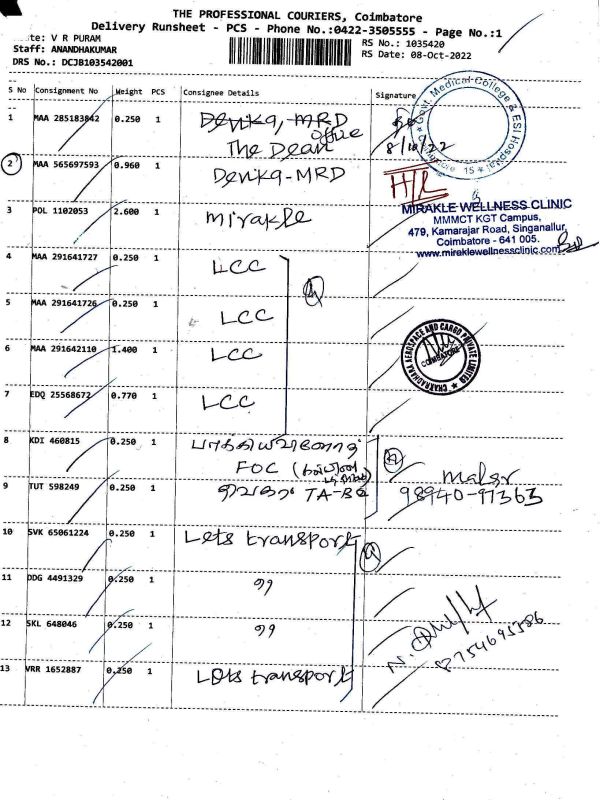 THE PROFESSIONAL COURIERS, Coimbatore
Delivery Runsheet - PCS - Phone No.:0422-3505555 - Page No.:1
te: V R PURAM
Staff: ANANDHAKUMAR
DRS No.: DCJB103542001
RS No.: 1035420
RS Date: 08-Oct-2022
S No Consignment No Weight PCS Consignee Details Signature
1 MAA 285183842 0.250 1 Denka, MRD
office
The Dean
8/10/22
Govt. Medical College & ESI Hospital
15
2 MAA 565697593 0.960 1 Denka-MRD
H/L
3 POL 1102053 2.600 1 mirakle
MIRAKLE WELLNESS CLINIC
MMMCT KGT Campus,
479, Kamarajar Road, Singanallur,
Coimbatore - 641 005.
www.miraklewellnessclinic.com
4 MAA 291641727 0.250 1 LCC
4
5 MAA 291641726 0.250 1 LCC
6 MAA 291642110 1.400 1 LCC
CHAKRADHARA AEROSPACE AND CARGO PRIVATE LIMITED
COIMBATORE
7 EDQ 25568672 0.770 1 LCC
8 KDI 460815 0.250 1
FOC
9 TUT 598249 0.250 1 TA-BQ
98940-97363
10 SVK 65061224 0.250 1 Lets transport
11 DDG 4491329 0.250 1 99
12 SKL 648046 0.250 1 99
8754695386
13 VRR 1652887 0.250 1 Lets transport